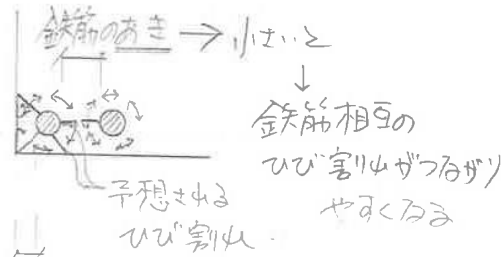 鉄筋のあき → 小さいと
↓
鉄筋相互の
ひび割れがつながり
やすくなる
予想される
ひび割れ.